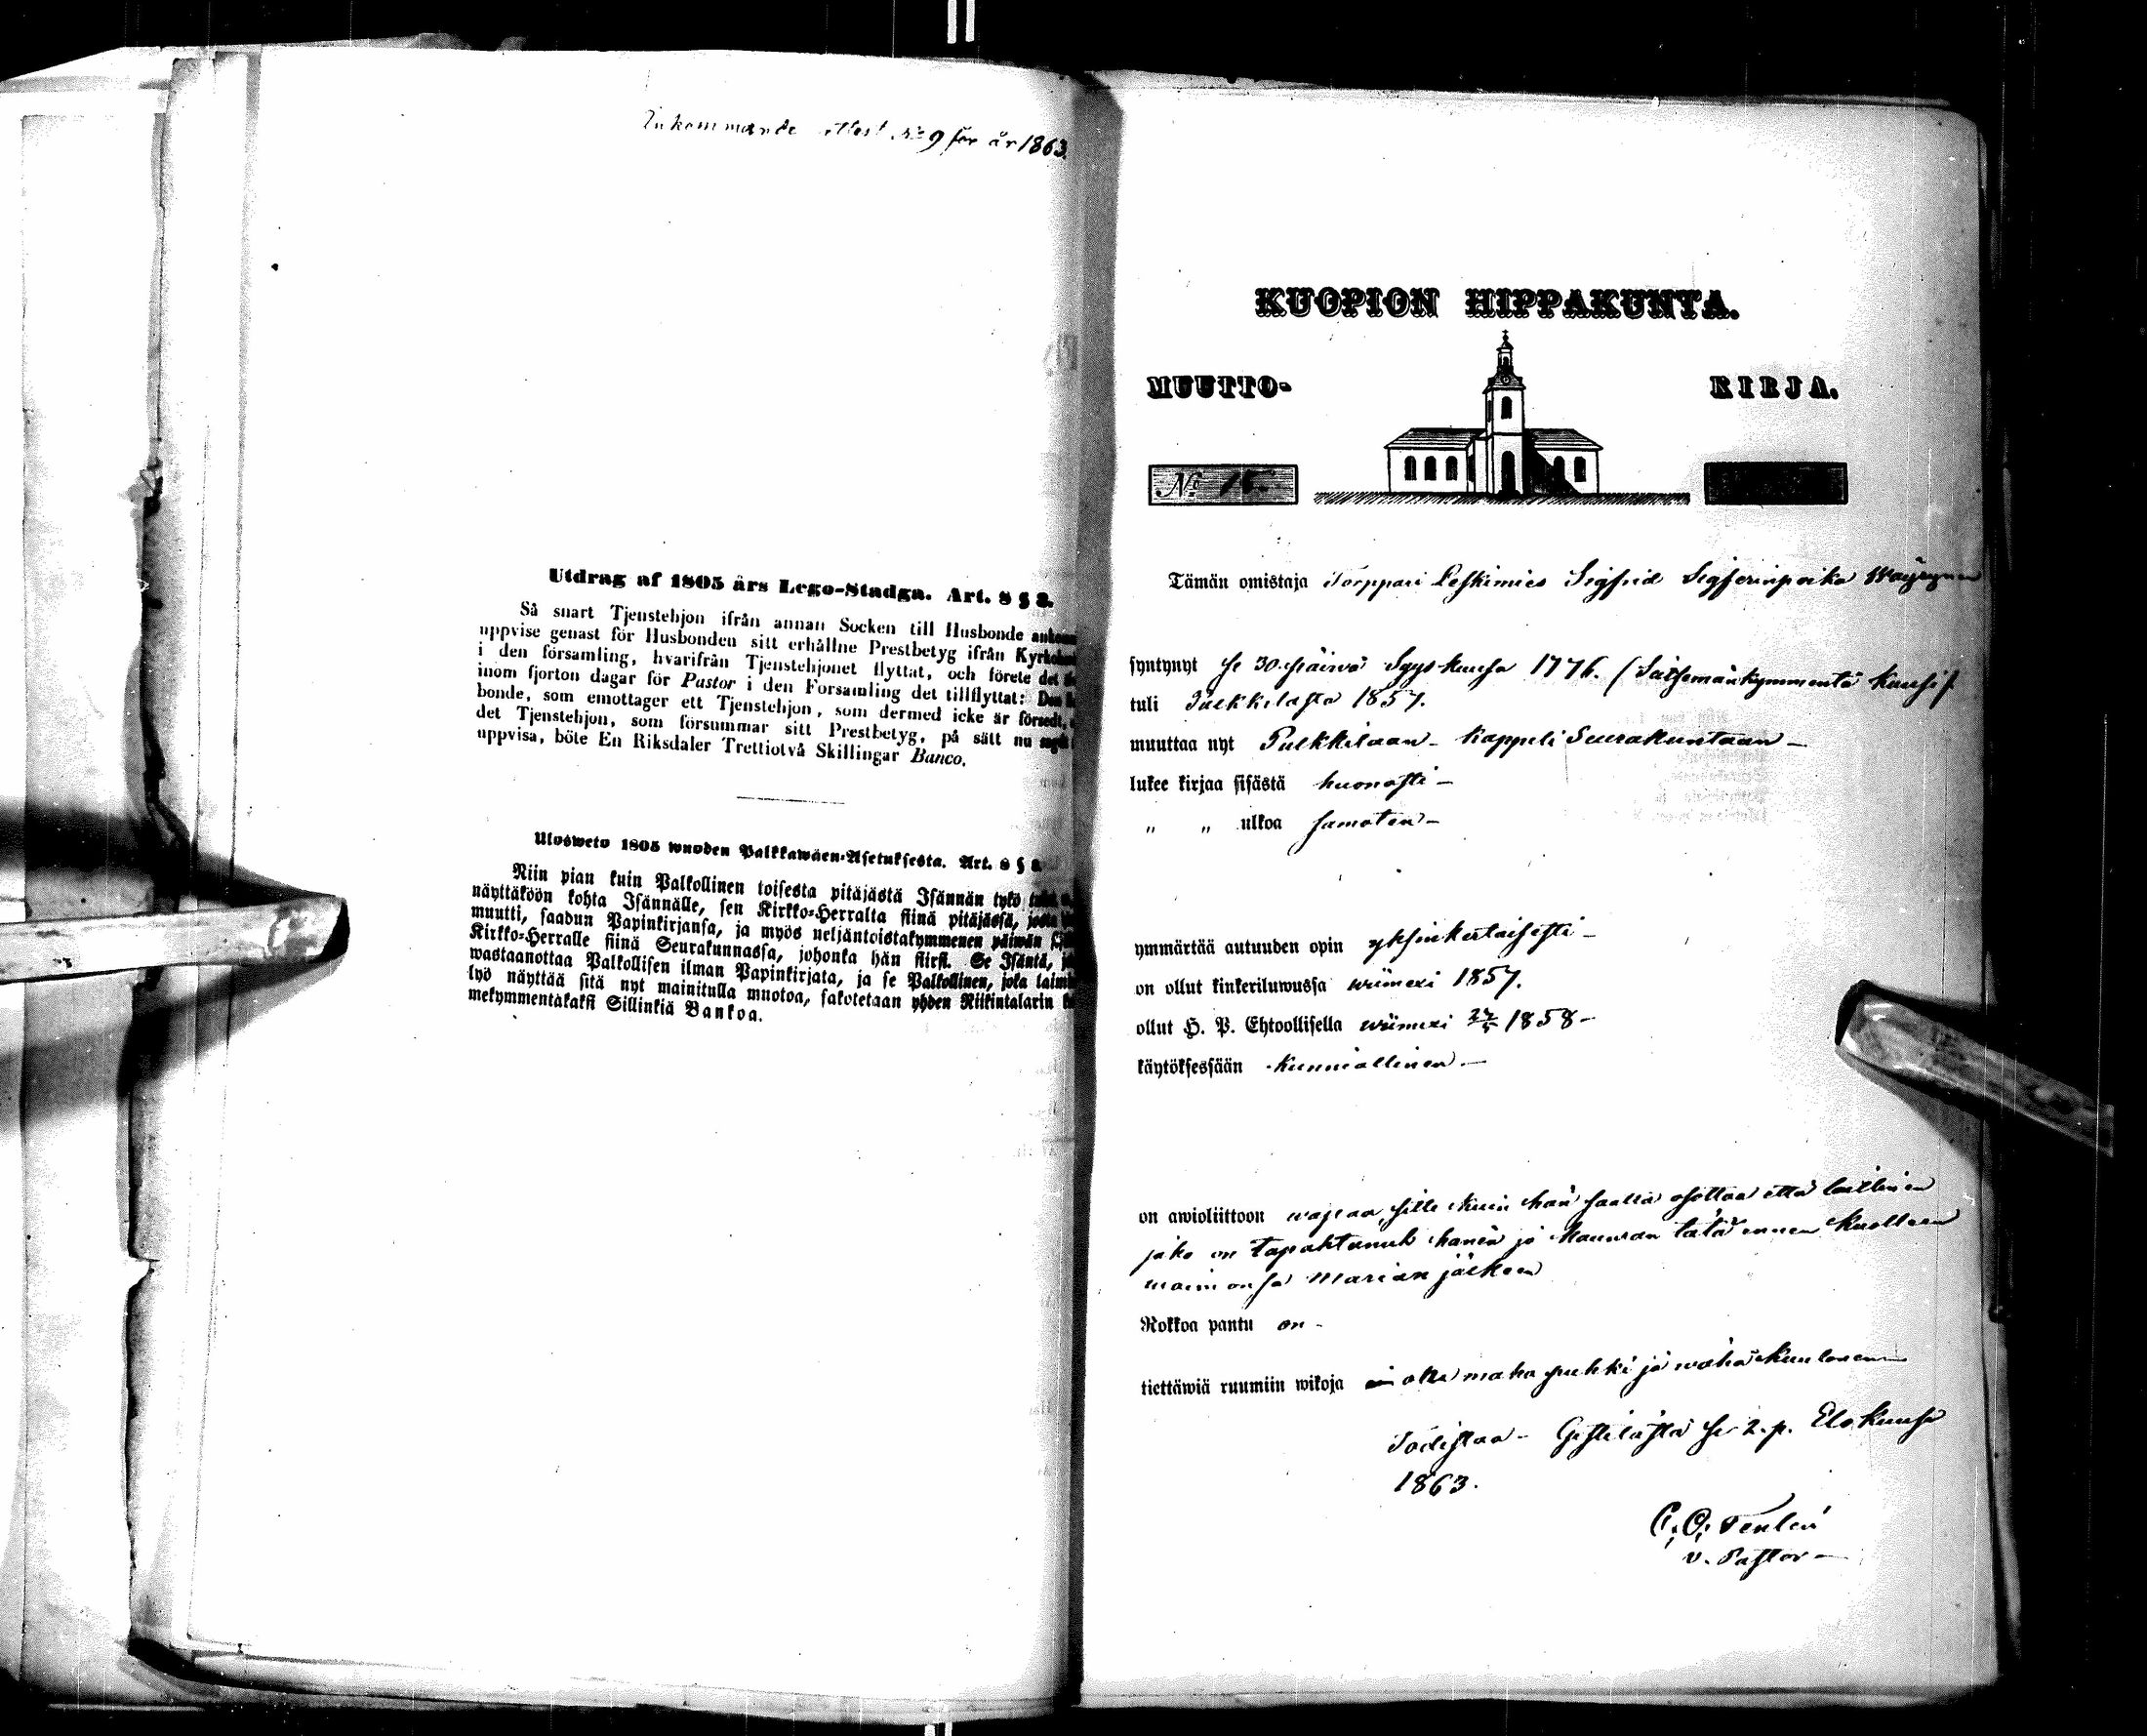 Inkommande attest No 9 för år 1863.
Utdrag af 1805 års Lego-Stadga. Art. 8 § 3.
Så snart Tjenstehjon ifrån annan Socken till Husbonde
uppvise genast för Husbonden sitt erhållne Prestbetyg ifrån
i den församling, hvarifrån Tjenstehjonet flyttat, och förete det
inom fjorton dagar för Pastor i den Forsamling det tillflyttat:
bonde, som emottager ett Tjenstehjon, som dermed icke är försedt,
det Tjenstehjon, som försummar sitt Prestbetyg, på sätt nu
uppvisa, böte En Riksdaler Trettiotvå Skillingar Banco.
Ulosweto 1805 wuoden Palkkawäen-Asetuksesta. Art. 8 §
Niin pian kuin Palkollinen toisesta pitäjästä Isännän tykö
näyttäköön kohta Isännälle, sen Kirkko-Herralta siinä pitäjässä,
muutti, saadun Papinkirjansa, ja myös neljäntoistakymmenen päiwän
Kirkko-Herralle siinä Seurakunnassa, johonka hän siirsi. Se Isäntä,
wastaanottaa Palkollisen ilman Papinkirjata, ja se Palkollinen, joka
lyö näyttää sitä nyt mainitulla muotoa, sakotetaan yhden Riikintalarin
mekymmentäkaksi Sillinkiä Bankoa.
KUOPION HIPPAKUNTA.
MUUTTO- KIRJA.
No
Tämän omistaja Torppari Leskimies Sigfrid Sigferinpoika Wäyrynen
syntynyt se 30. päiwä Syyskuusa 1776. (Säitsemänkymmentä kuusi)
tuli Pulkkilasta 1857.
muuttaa nyt Pulkkilaan - kappeli Seurakuntaan -
lukee kirjaa sisästä huonosti -
" " ulkoa samoten -
ymmärtää autuuden opin yksinkertaisesti -
on ollut kinkeriluwussa wiimexi 1857.
ollut H. P. Ehtoollisella wiimexi 1858 -
käytöksessään kunniallinen -
on awioliittoon wapaa, sitte kuin hän saatta osottaa että laillinen
jako on tapahtunut hänen jo kauwan tätä ennen kuolleen
waimonsa Marian jälkeen
Rokkoa pantu on -
tiettäwiä ruumiin wikoja maha puhki ja wähä
Todistaa - Gestilästä se 2. p. Elokuusa
1863.
v. Pastor -